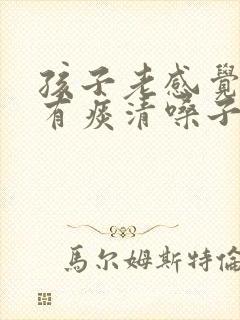 孩子老感覺
有痰清嗓子
馬尔姆斯特倫